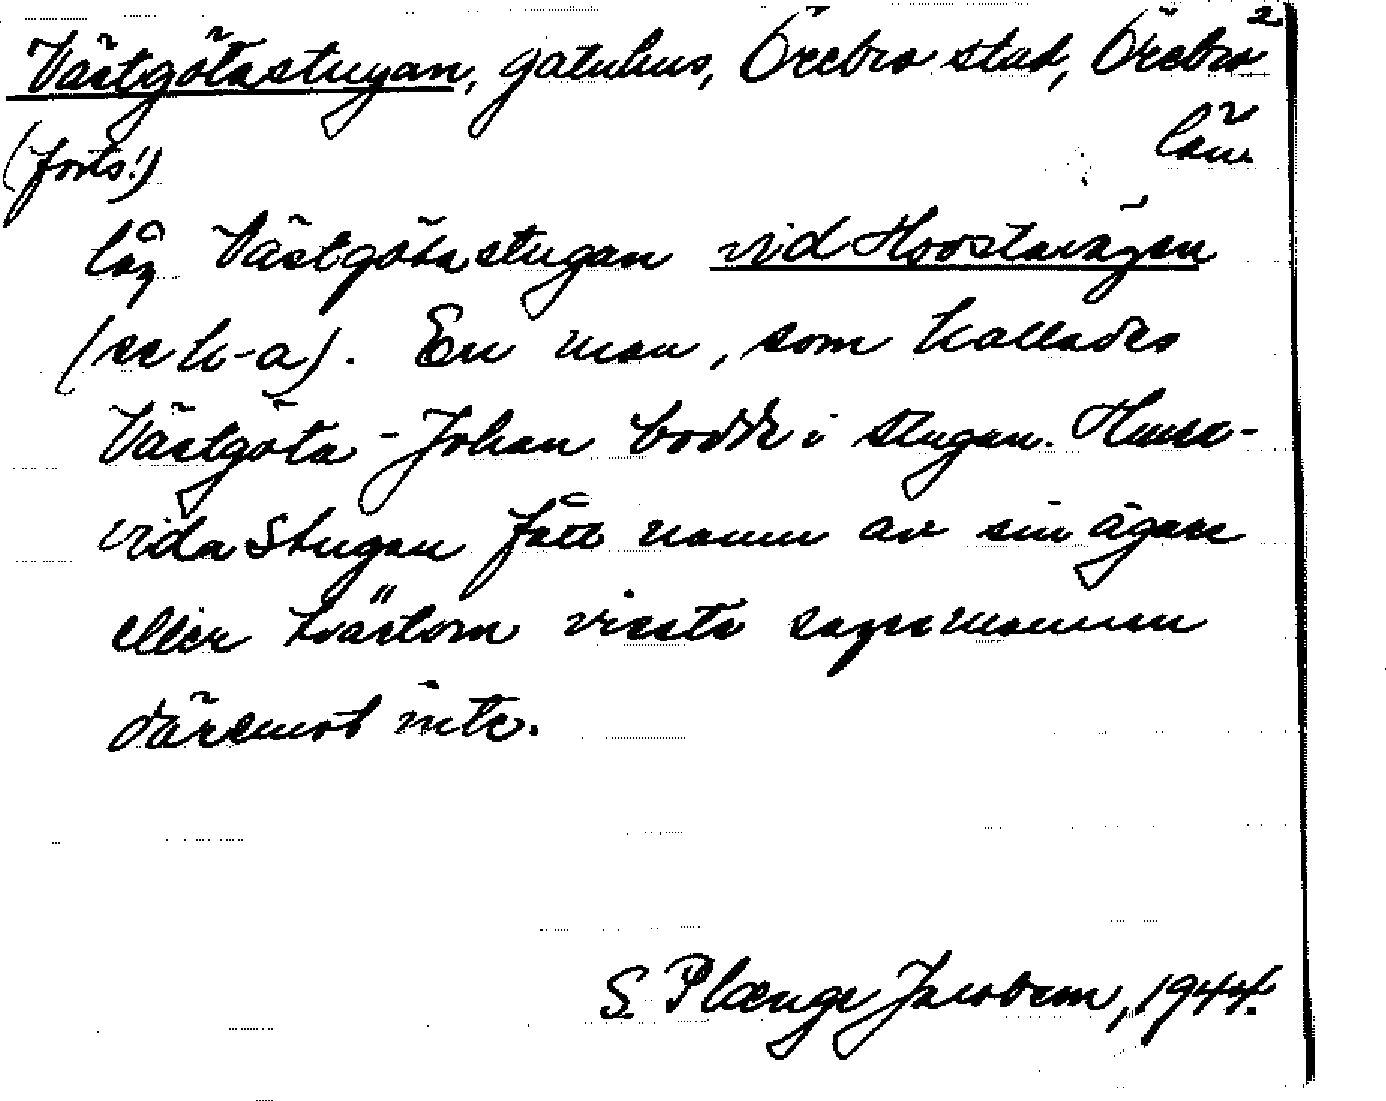 2
Västgötastugan, gatuhus, Örebro stad, Örebro
(forts!) län
låg Västgötastugan vid Hovstavägen
(se h-a). En man, som kallades
Västgöta-Johan bodde i stugan. Huru-
vida Stugan fått namn av sin ägare
eller tvärtom visste sagesmannen
däremot inte.
S. Plænge Jacobson, 1944.